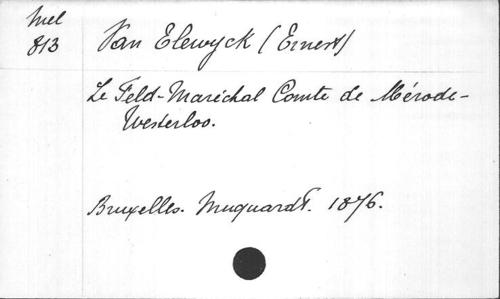 Mel
813
Van Elewyck (Ernest)
Le Feld-Maréchal Comte de Mérode-
Westerloo.
Bruxelles. Muquardt. 1876.